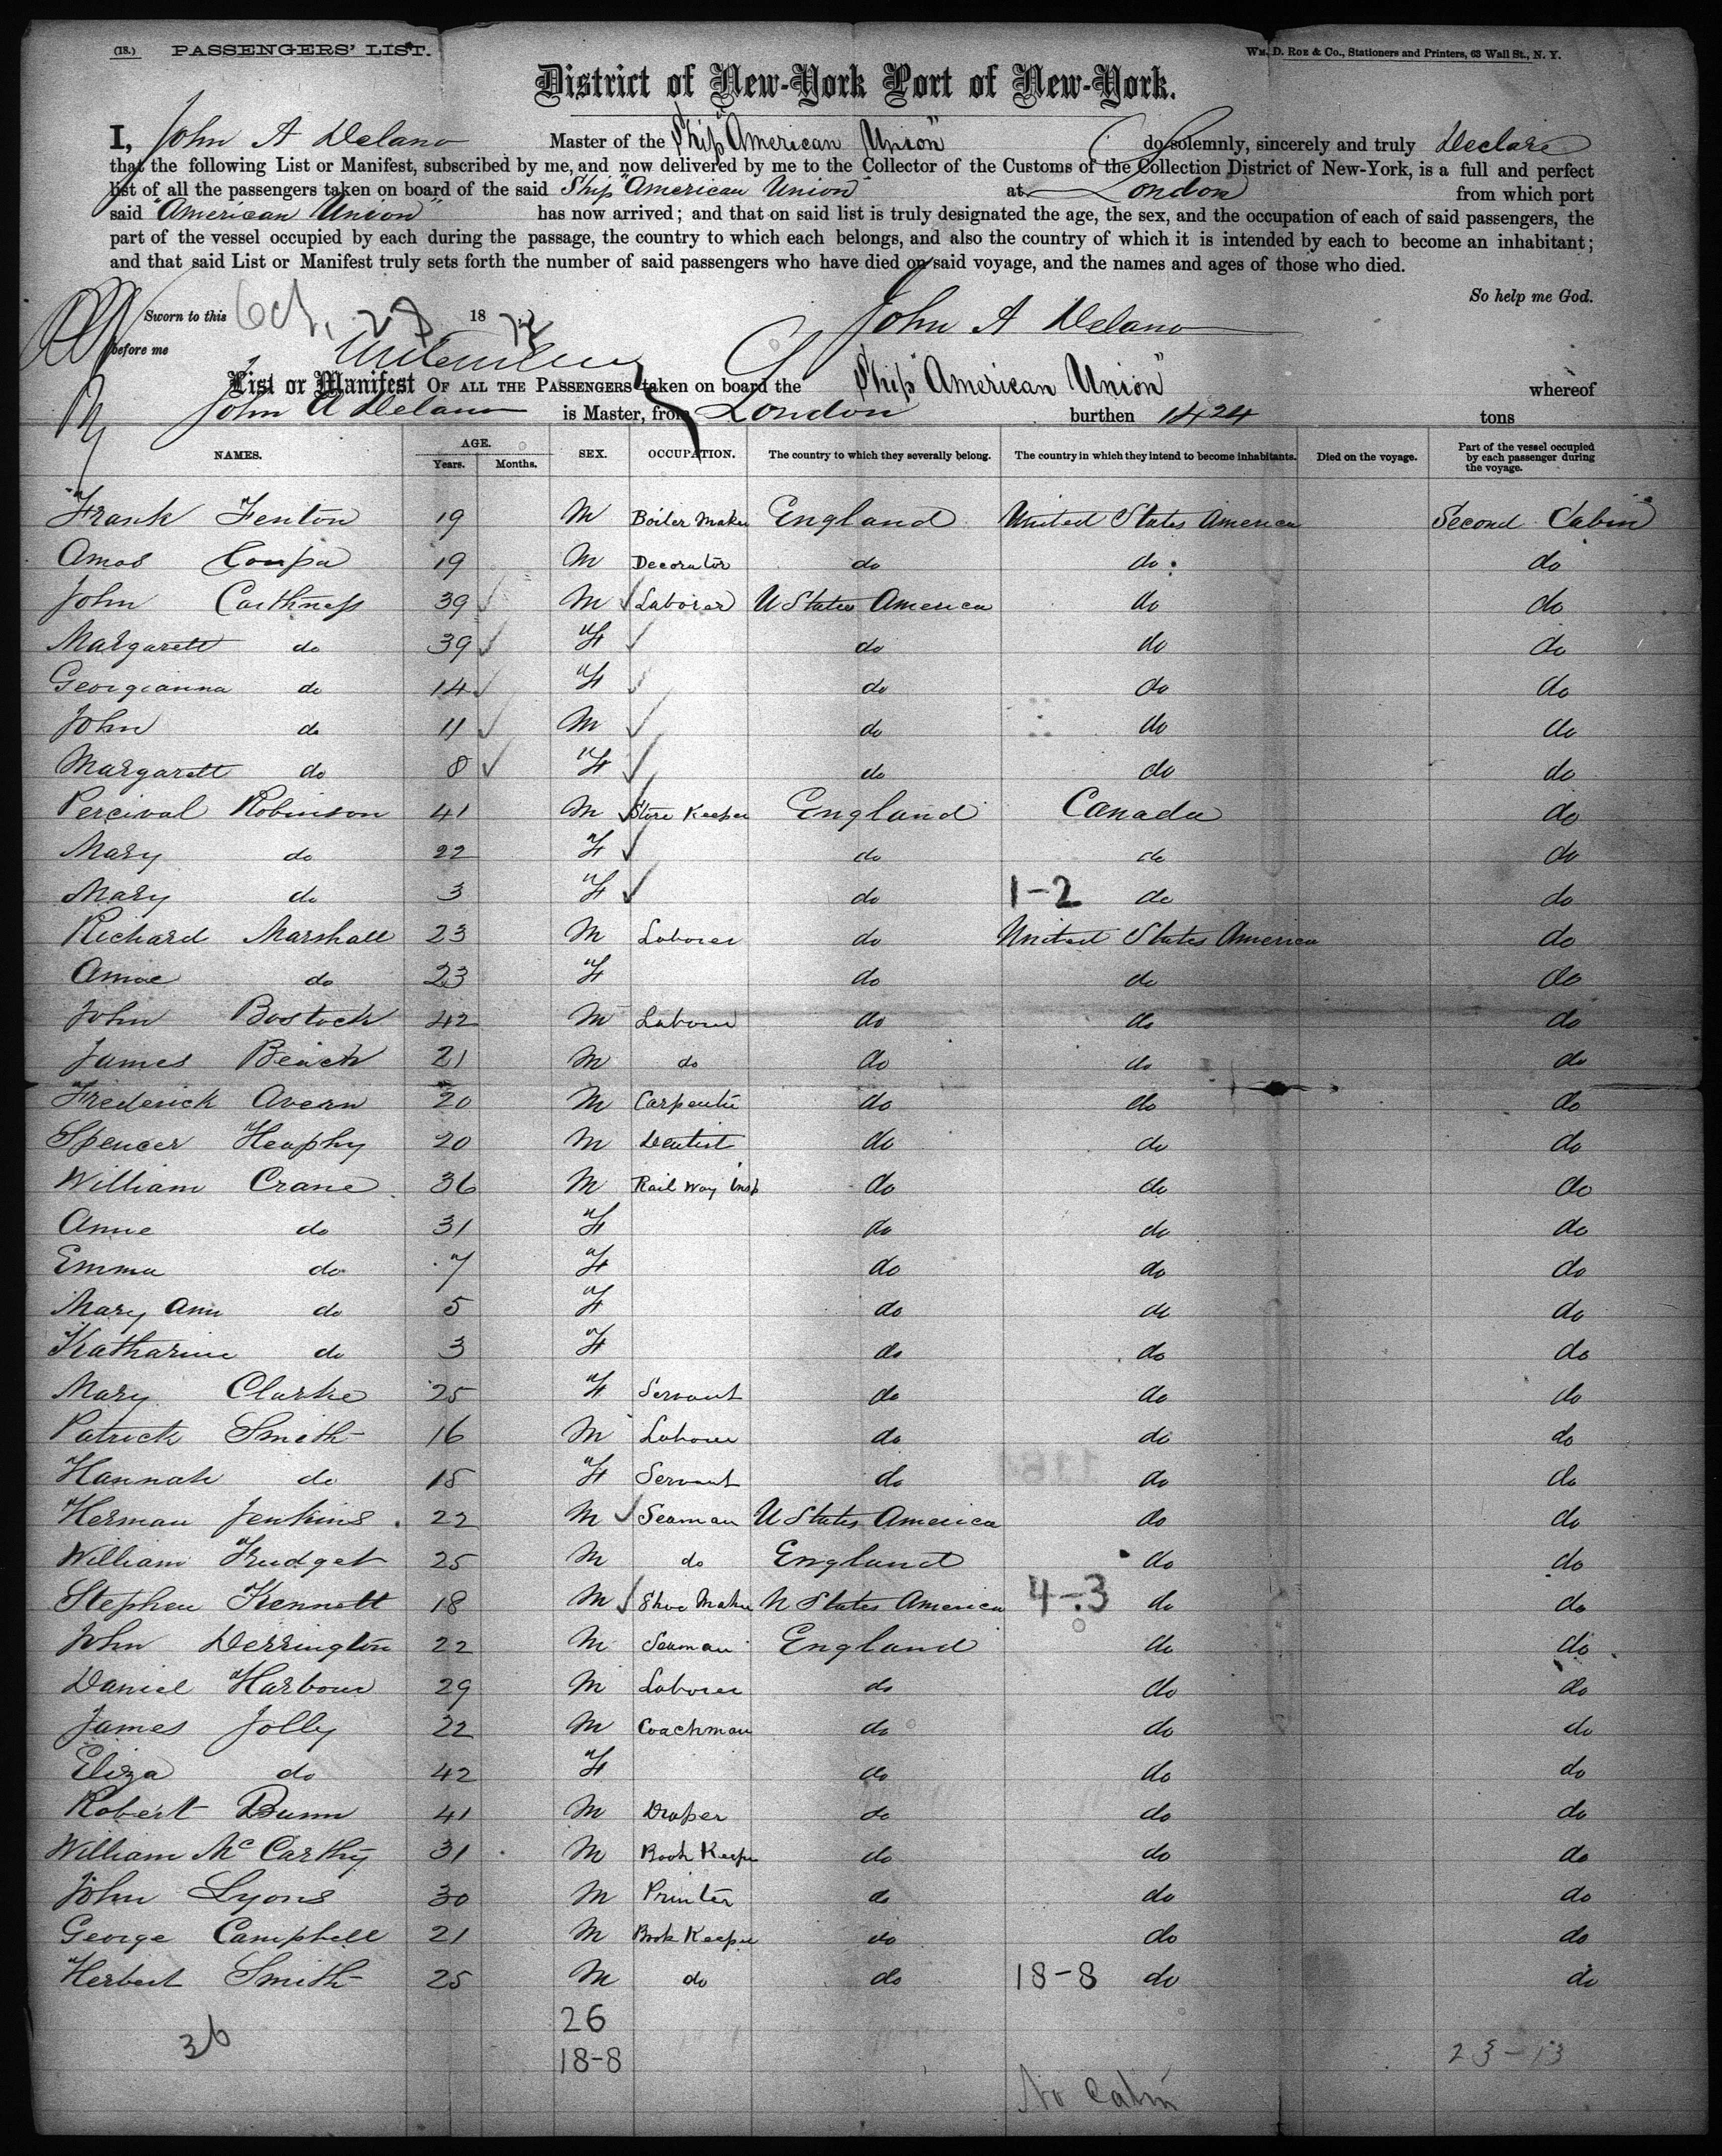 (18.) PASSENGERS' LIST. Wm. D. Roe & Co., Stationers and Printers, 63 Wall St., N. Y.
District of New-York Port of New-York.
I, John A Delano Master of the Ship "American Union" do solemnly, sincerely and truly Declare
that the following List or Manifest, subscribed by me, and now delivered by me to the Collector of the Customs of the Collection District of New-York, is a full and perfect
list of all the passengers taken on board of the said Ship "American Union" at London from which port
said "American Union" has now arrived; and that on said list is truly designated the age, the sex, and the occupation of each of said passengers, the
part of the vessel occupied by each during the passage, the country to which each belongs, and also the country of which it is intended by each to become an inhabitant;
and that said List or Manifest truly sets forth the number of said passengers who have died on said voyage, and the names and ages of those who died.
So help me God.
Sworn to this Oct. 27 18 John A Delano
before me
List or Manifest OF ALL THE PASSENGERS taken on board the Ship "American Union" whereof
John A Delano is Master, from London burthen 1424 tons
NAMES. AGE. Years. Months. SEX. OCCUPATION. The country to which they severally belong. The country in which they intend to become inhabitants. Died on the voyage. Part of the vessel occupied by each passenger during the voyage.
Frank Fenton 19 M Boiler Maker England United States America Second Cabin
Amos 19 M Decorator do do do
John Caithness 39 M Laborer U States America do do
Margarett do 39 F do do do
Georgianna do 14 F do do do
John do 11 M do do do
Margarett do 8 F do do do
Percival Robinson 41 M Store Keeper England Canada do
Mary do 22 F do do do
Mary do 3 F do 1-2 do do
Richard Marshall 23 M Laborer do United States America do
do 23 F do do do
John Bostock 42 M Laborer do do do
James Beach 21 M do do do do
Frederick Avern 20 M Carpenter do do do
Spencer Heaphy 20 M Dentist do do do
William Crane 36 M Rail Way Insp do do do
Anne do 31 F do do do
Emma do 7 F do do do
Mary Ann do 5 F do do do
Katharine do 3 F do do do
Mary Clarke 25 F Servant do do do
Patrick Smith 16 M Laborer do do do
Hannah do 18 F Servant do do do
Herman Jenkins 22 M Seaman U States America do do
William Frudget 25 M do England do do
Stephen Kennett 18 M Shoe Maker U States America 4-3 do do
John Derrington 22 M Seaman England do do
Daniel Harbour 29 M Laborer do do do
James Jolly 22 M Coachman do do do
Eliza do 42 F do do do
Robert Dunn 41 M Draper do do do
William McCarthy 31 M Book Keeper do do do
John Lyons 30 M Printer do do do
George Campbell 21 M Book Keeper do do do
Herbert Smith 25 M do do 18-8 do do
26
36
18-8 23-13
No Cabin